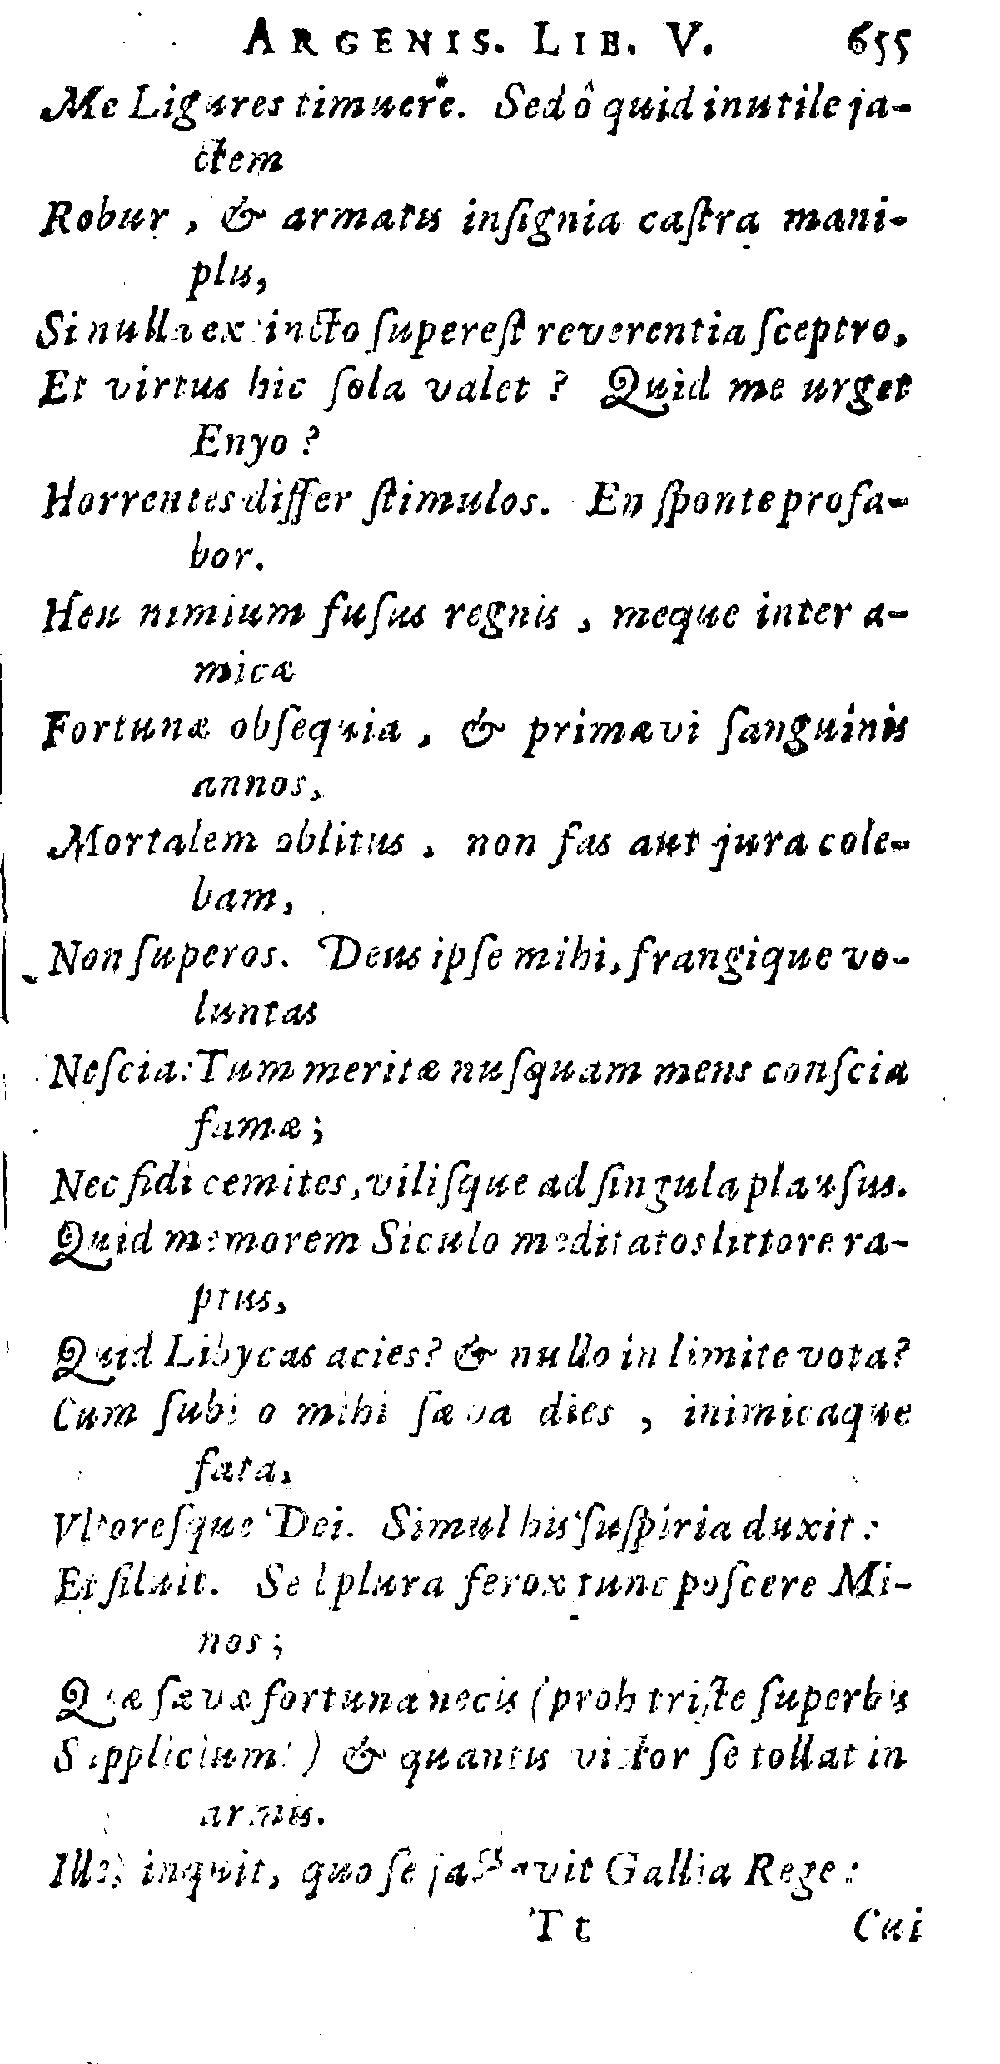 ARGENIS. LIB. V. 655
Me Ligures timuere. Sed ô quid inutile ja-
ctem
Robur, & armatis insignia castra mani-
plis,
Si nulla extincto superest reverentia sceptro,
Et virtus hic sola valet? Quid me urget
Enyo?
Horrentes differ stimulos. En sponte profa-
bor.
Heu nimium fusus regnis, meque inter a-
micæ
Fortunæ obsequia, & primævi sanguinis
annos,
Mortalem oblitus, non fas aut jura cole-
bam,
Non superos. Deus ipse mihi, frangique vo-
luntas
Nescia: Tum meritæ nusquam mens conscia
famæ;
Nec fidi cemites, vilisque ad singula plausus.
Quid memorem Siculo meditatos littore ra-
ptus,
Quid Libycas acies? & nullo in limite vota?
Cum subito mihi sæva dies, inimicaque
fata,
Vltoresque Dei. Simul his suspiria duxit:
Et siluit. Sed plura ferox tunc poscere Mi-
nos;
Quæ sævæ fortuna necis (proh triste superbis
Supplicium!) & quantis victor se tollat in
armis.
Ille, inquit, quo se jactavit Gallia Rege:
Tt Cui